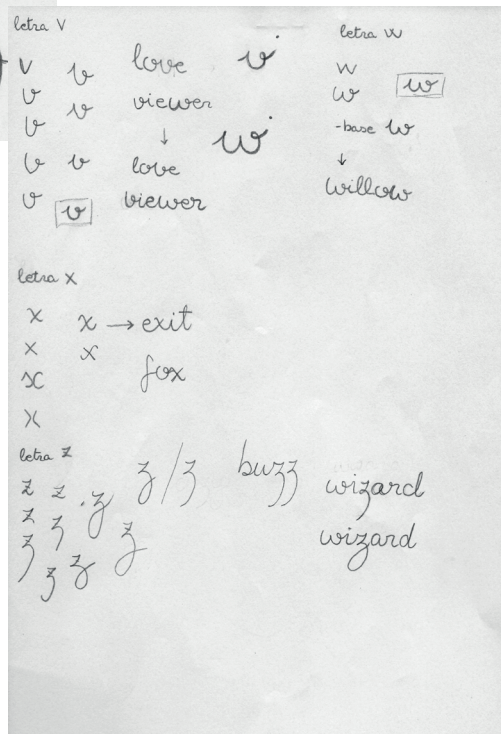 letra V
v v love v
v v viewer
v ↓ w
v v love
v v viewer
letra W
w
w w
-base w
↓
willow
letra X
x x → exit
x x
x fox
x
letra Z
z z z z/z buzz wizard
z z z wizard
z z z